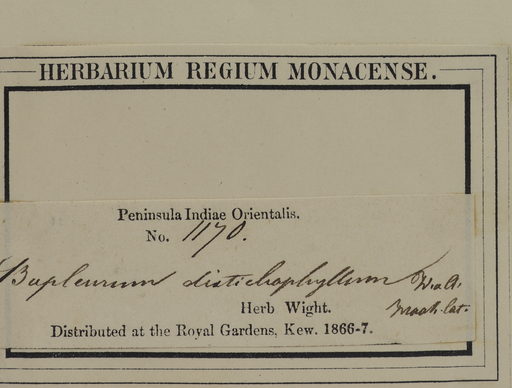 HERBARIUM REGIUM MONACENSE.
Peninsula Indiae Orientalis.
No. 1170.
Bupleurum distichophyllum W. & A.
Herb Wight.
Distributed at the Royal Gardens, Kew. 1866-7.